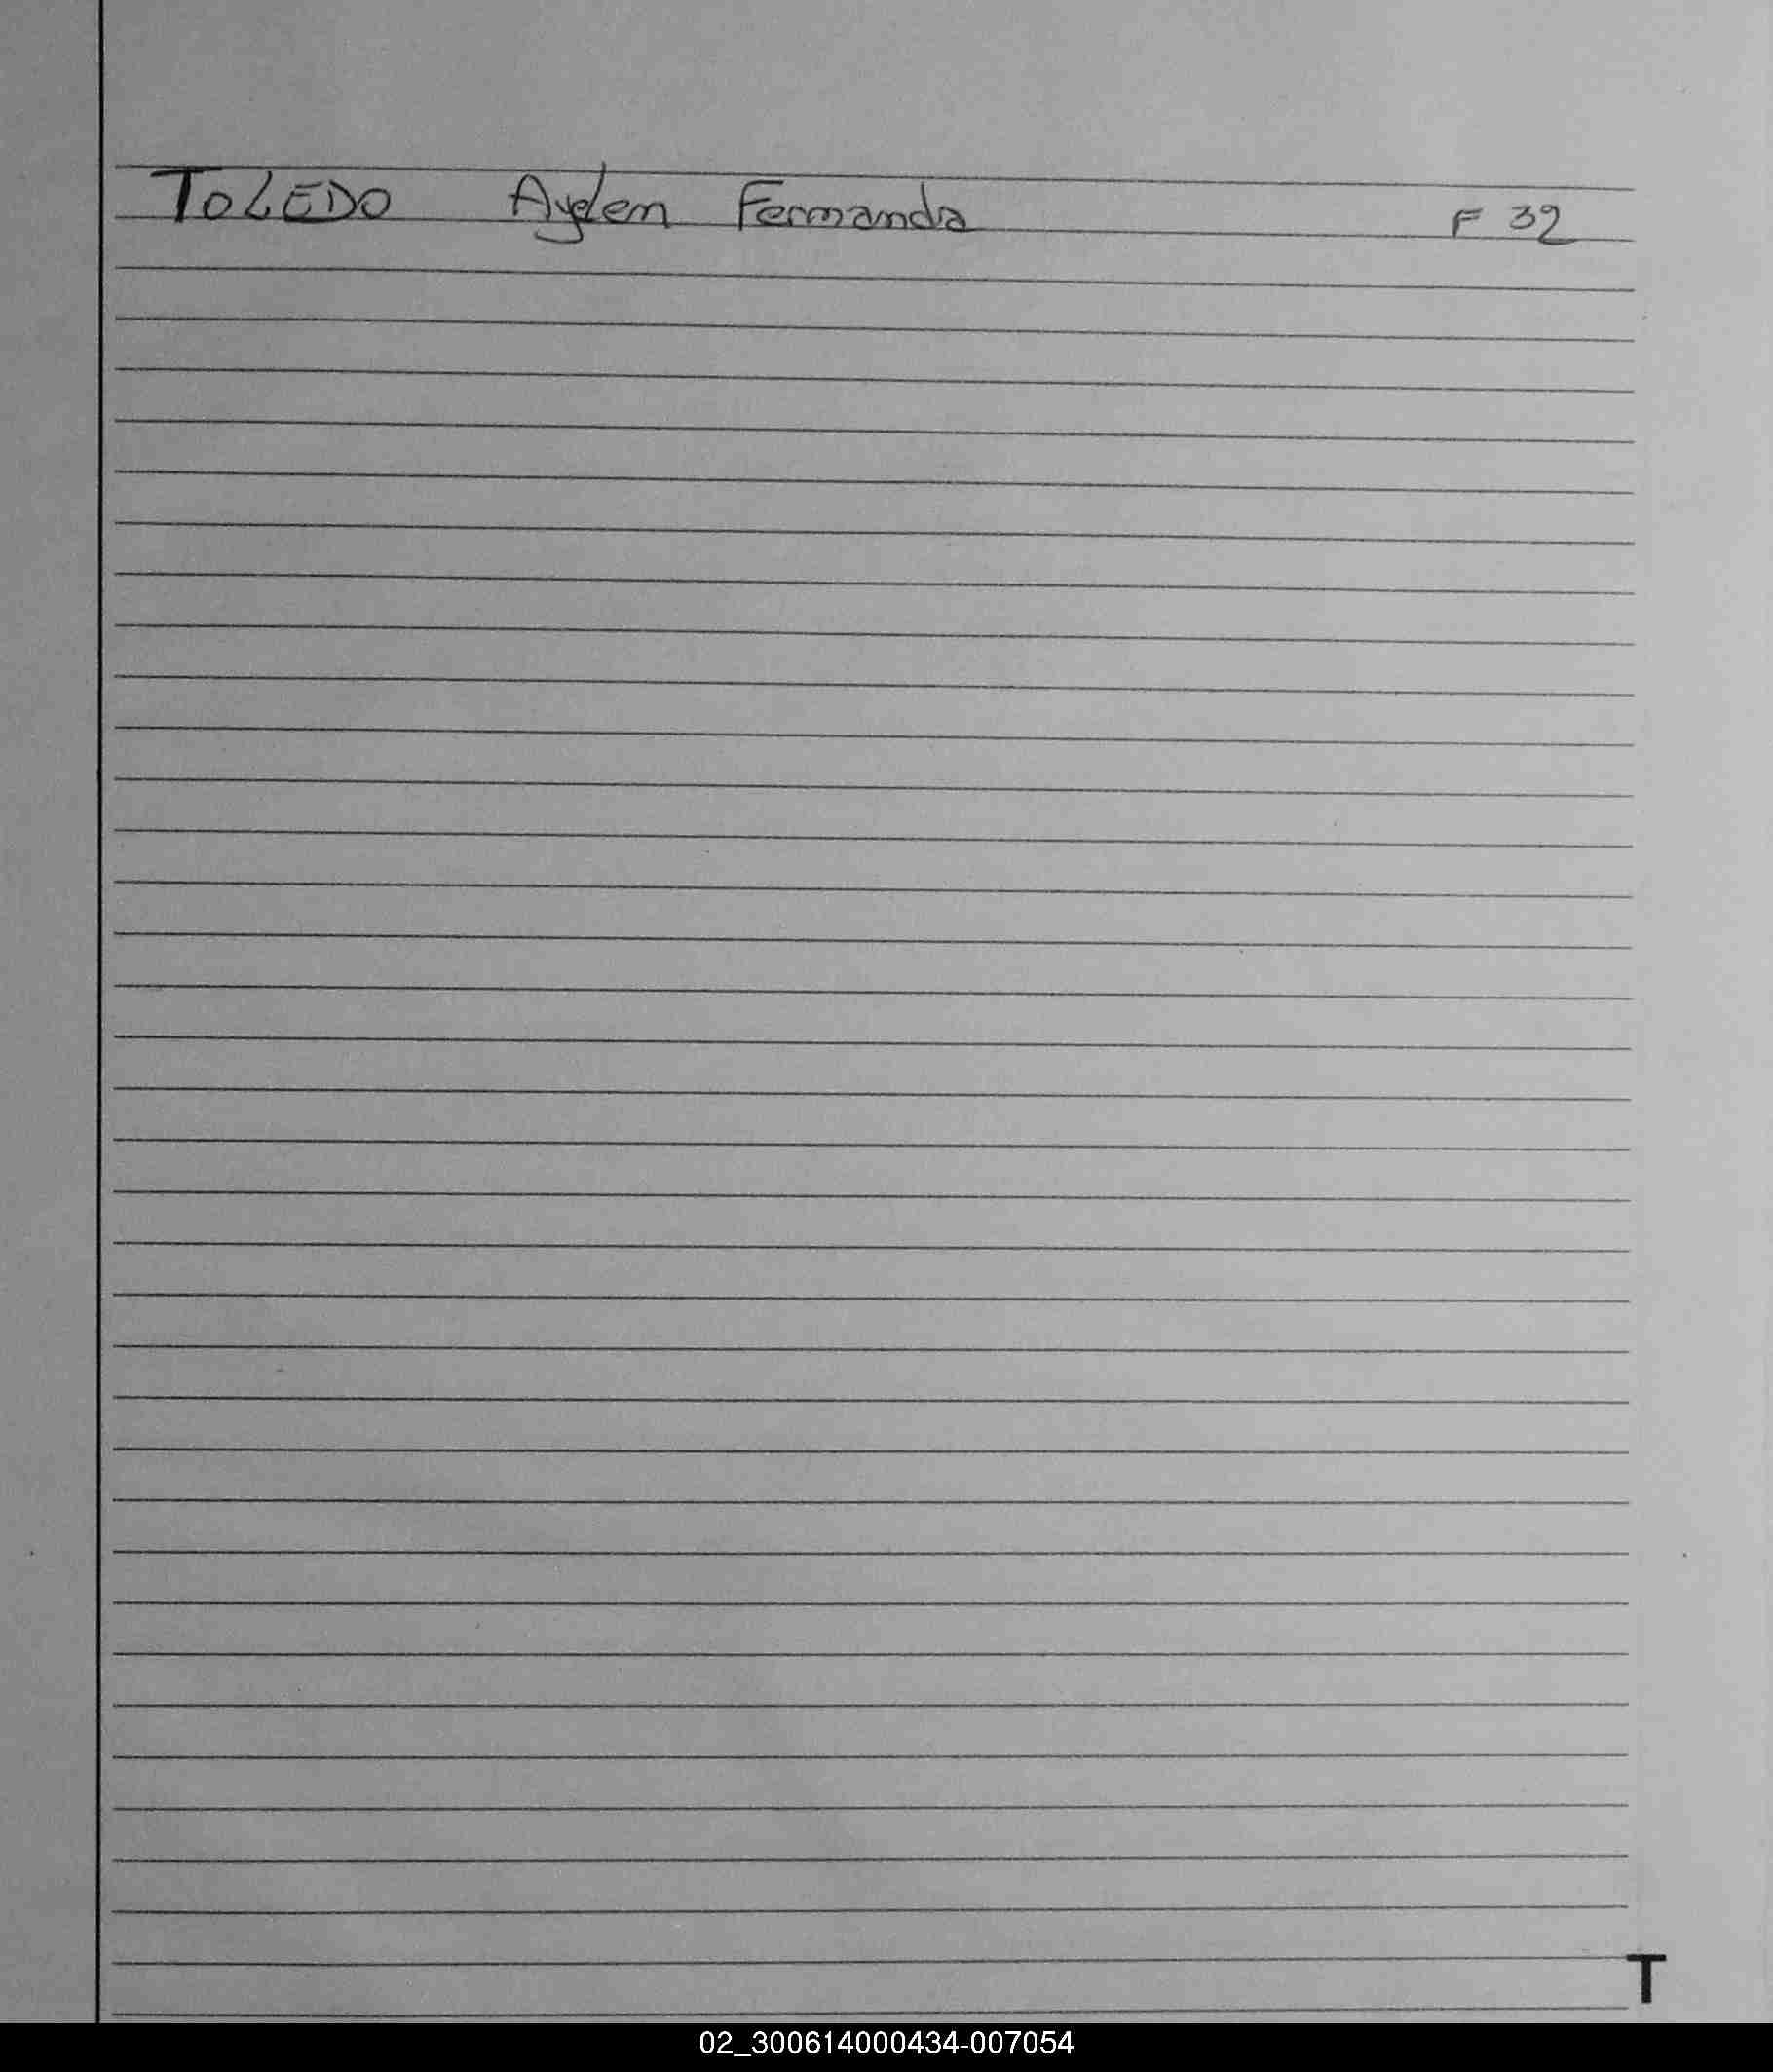 TOLEDO Ayelen Fernanda F 32
T
02_300614000434-007054